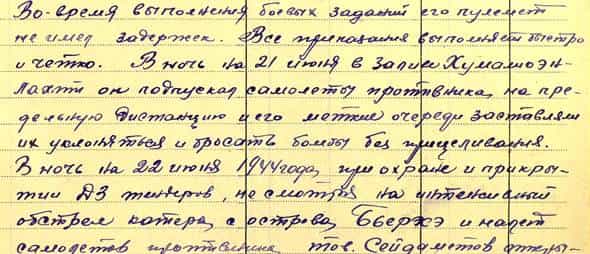 Во-время выполнения боевых заданий его пулемет
не имел задержек. Все приказания выполняет быстро
и четко. В ночь на 21 июня в заливе Хумалиоэн-
лахти он подпускал самолеты противника, на пре-
дельную дистанцию и его меткие очереди заставляли
их уклоняться и бросать бомбы без прицеливания.
В ночь на 22 июня 1944 года, при охране и прикры-
тии ДЗ тендеров, не смотря на интенсивный
обстрел катера, с острова, Бьеркэ и налет
самолетов противника, тов. Сейдаметов откры-